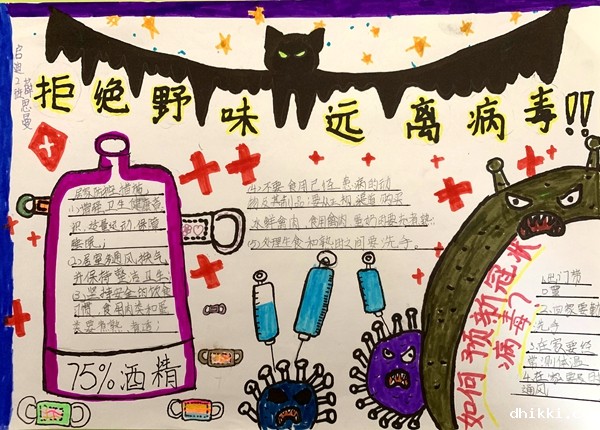 启迪2班
薛思曼
拒绝野味远离病毒!!
居家防控措施:
(1)增强卫生健康意
识,适量运动,保障
睡眠。
(2)居室多通风,换气
并保持整洁卫生
(3)坚持安全的饮食
习惯,食用肉类和蛋
类要
75%酒精
(4)不要食用已经患病的动
物及其制品:要从正规渠道购买
冰鲜禽肉,食用禽肉
(5)处理生食和熟食之间要洗手。
如何预新冠状
病毒?
1.出门带
口罩
2.回家要勤
洗手
3.在家要经
常测体温
通风
dhikki.c